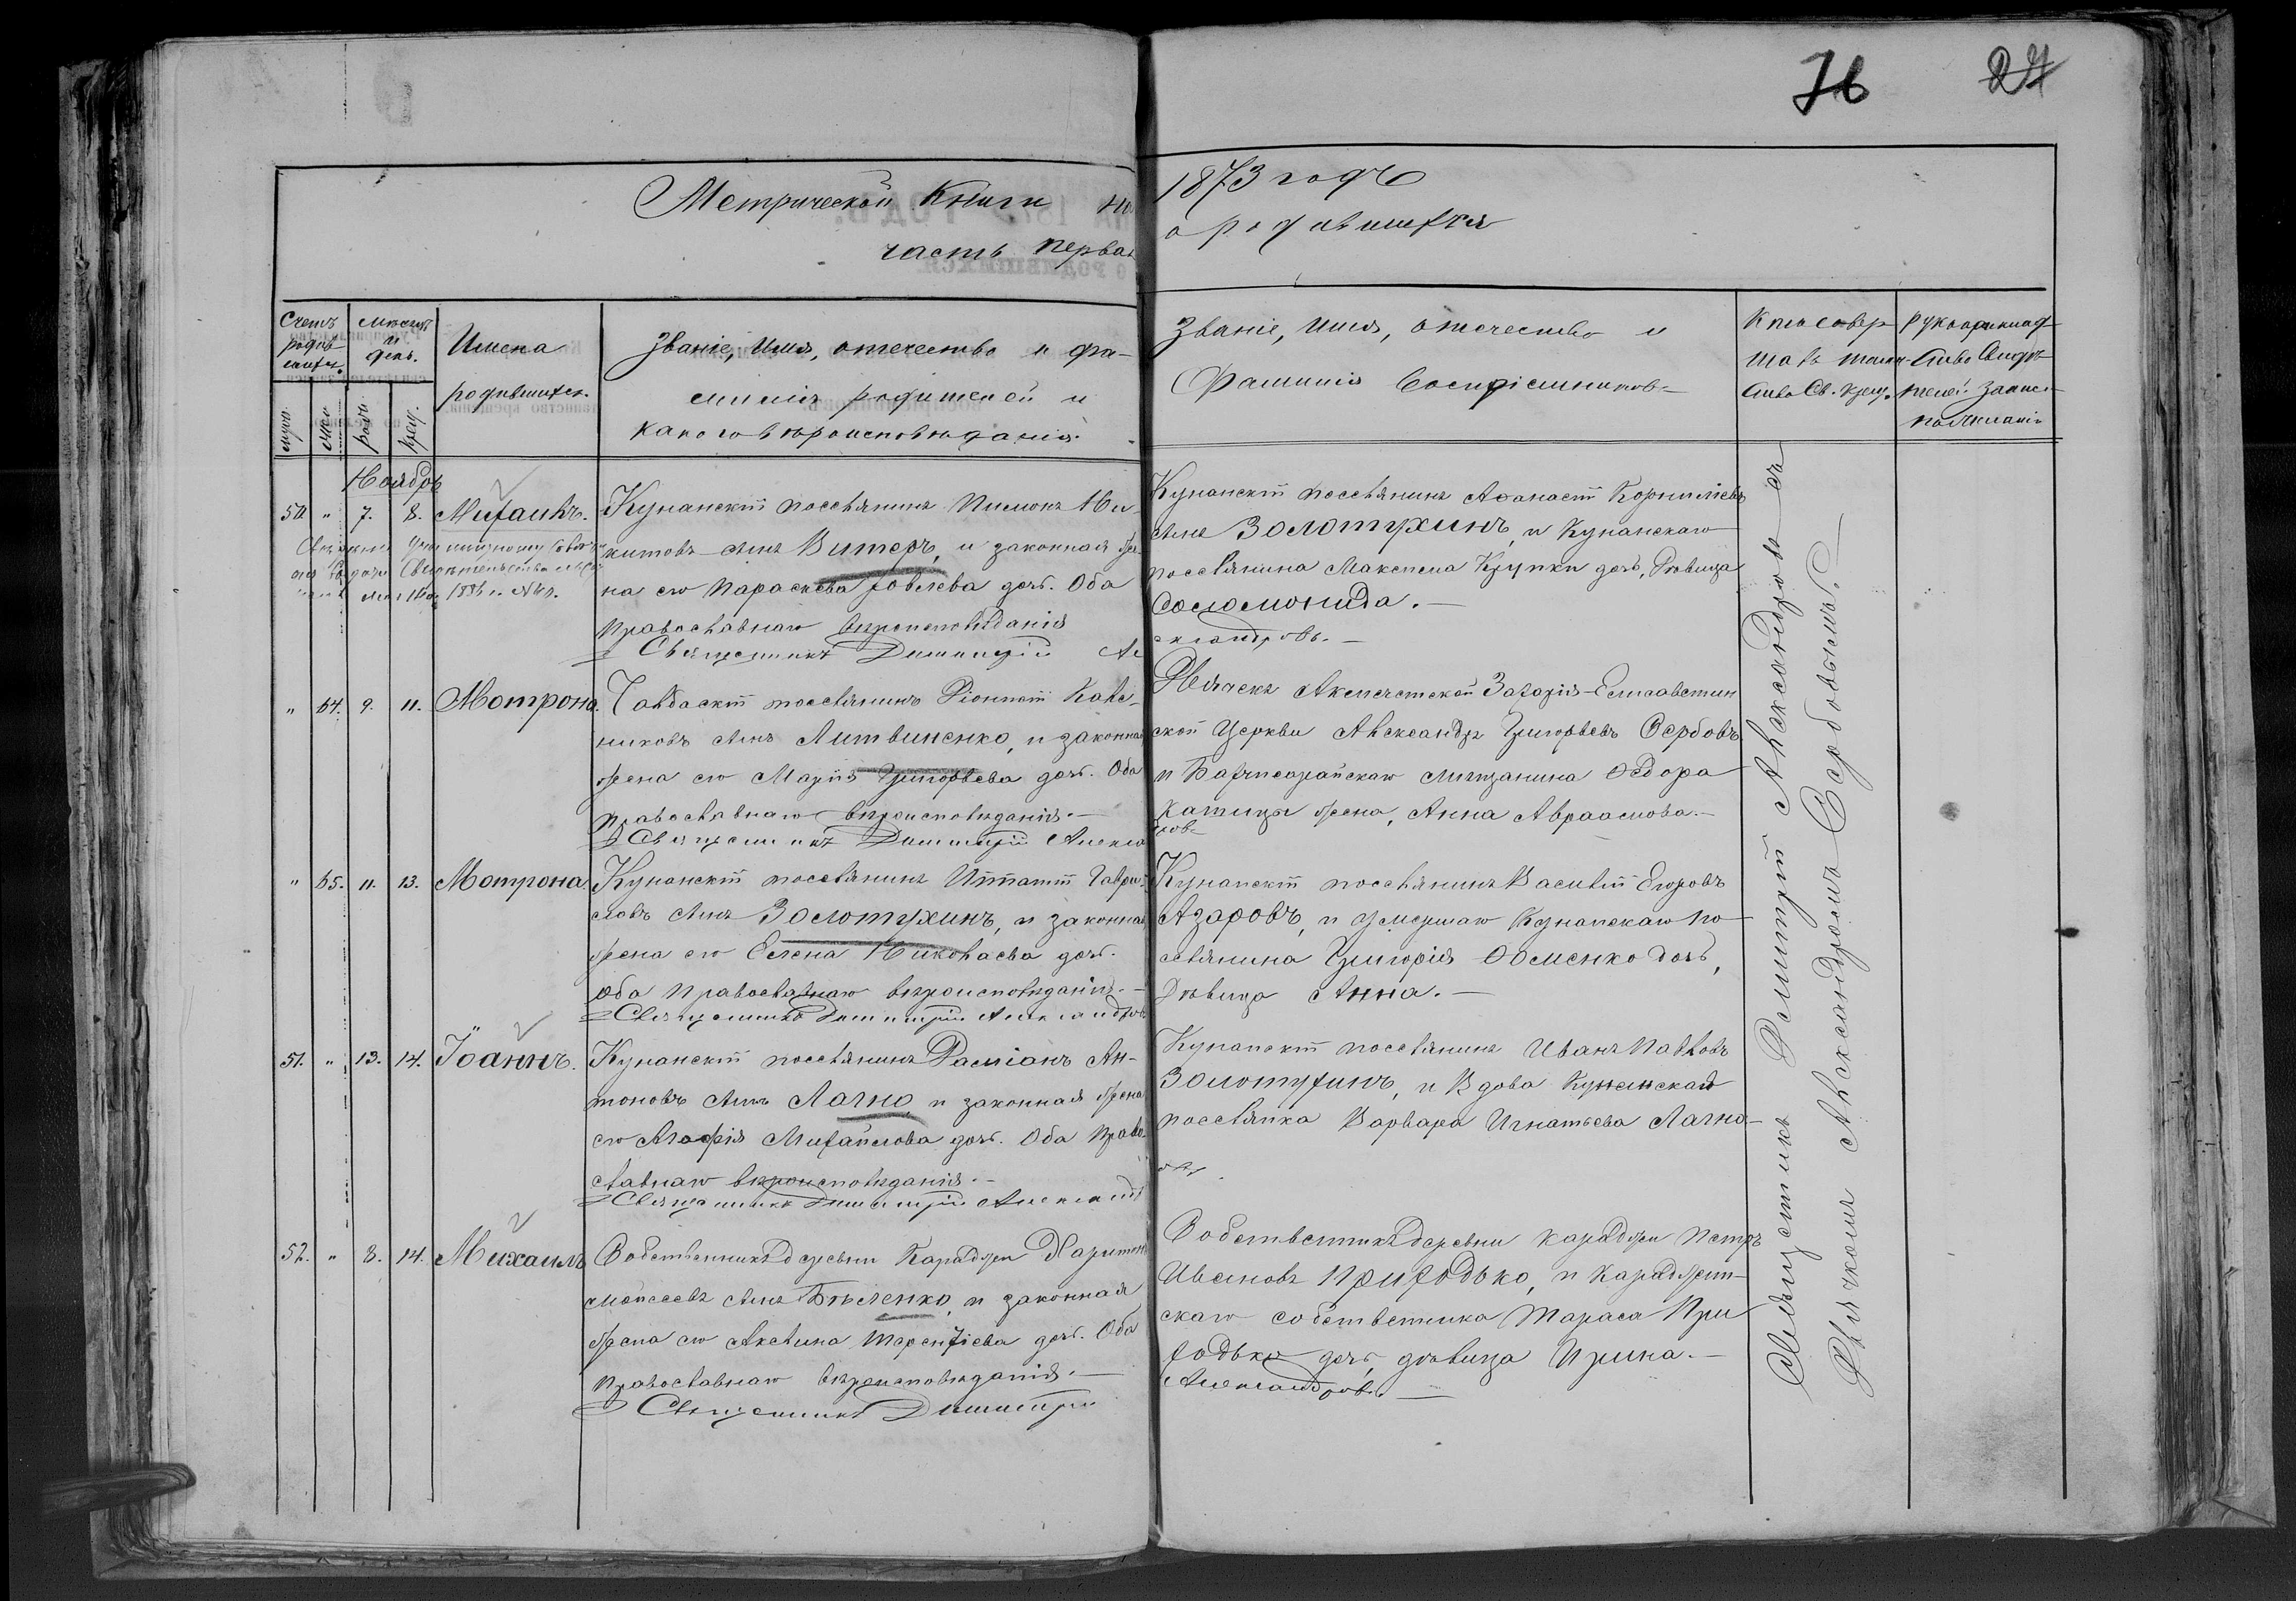 76 27
Метрической Книги на 1873 годъ
часть первая о родившихся
Счетъ родив
шихся.
мѣсяцъ и день.
Имена
родившихся.
Званіе, Имя, отечество и фа-
милія родителей и
какого вѣроисповѣданія.
Званіе, имя, отечество и
Фамилія Воспріемниковъ
Кто совер
шалъ таин
ство Св. Крещ.
рукоприклад
ство свидѣ
телей записи
по желанію
муж. жен. рожд. крещ.
Ноябрь
50. " 7. 8. Михаилъ.
Кунанскій поселянинъ Пименъ Ни-
китовъ сынъ Витеръ, и законная же-
на его Параскева Іовлева дочь. Оба
православнаго вѣроисповѣданія
Священникъ Димитрій Александровъ.
1886 г. №
Кунанскій поселянинъ Аѳанасій Корниліевъ
сынъ Золотухинъ, и Кунанскаго
поселянина Максима Крупки дочь, Дѣвица
Соломонида.
" 64. 9. 11. Мотрона.
Чавдаскій поселянинъ Діонисій
сынъ Литвиненко, и законная
жена его Марія Григорьева дочь. Оба
православнаго вѣроисповѣданія.
Священникъ Димитрій Александровъ
Дьячекъ Акмечетской Захаріе-Елисаветин
ской Церкви Александръ Григорьевъ Сербовъ
и Бахчисарайскаго мѣщанина Ѳедора
жена, Анна Авраамова.
" 65. 11. 13. Мотрона.
Кунанскій поселянинъ Игнатій Гаври-
ловъ сынъ Золотухинъ, и законная
жена его Елена Николаева дочь.
Оба православнаго вѣроисповѣданія.
Священникъ Димитрій Александровъ
Кунанскій поселянинъ Василій Егоровъ
Азаровъ, и умершаго Кунанскаго по-
селянина Григорія Ѳоменко дочь,
Дѣвица Анна.
51. " 13. 14. Іоаннъ.
Кунанскій поселянинъ Даміанъ Ан-
тоновъ сынъ Лагно, и законная жена
его Агафія Михайлова дочь. Оба право-
славнаго вѣроисповѣданія.
Священникъ Димитрій Александровъ.
Кунанскій поселянинъ Иванъ Павловъ
Золотухинъ, и Вдова Кунанская
поселянка Варвара Игнатьева Лагно.
52. " 8. 14. Михаилъ
Собственникъ деревни Караджи Харитонъ
Моисеевъ сынъ Бѣленко, и законная
жена его Акелина Терентіева дочь. Оба
православнаго вѣроисповѣданія.
Священникъ Димитрій Александровъ.
Собственникъ деревни Караджи Петръ
Ивановъ Приходько, и Караджин-
скаго собственника Тараса При
ходько дочь, дѣвица Ирина.
Священникъ Димитрій Александровъ съ
Дьячкомъ Александромъ Сербовымъ.